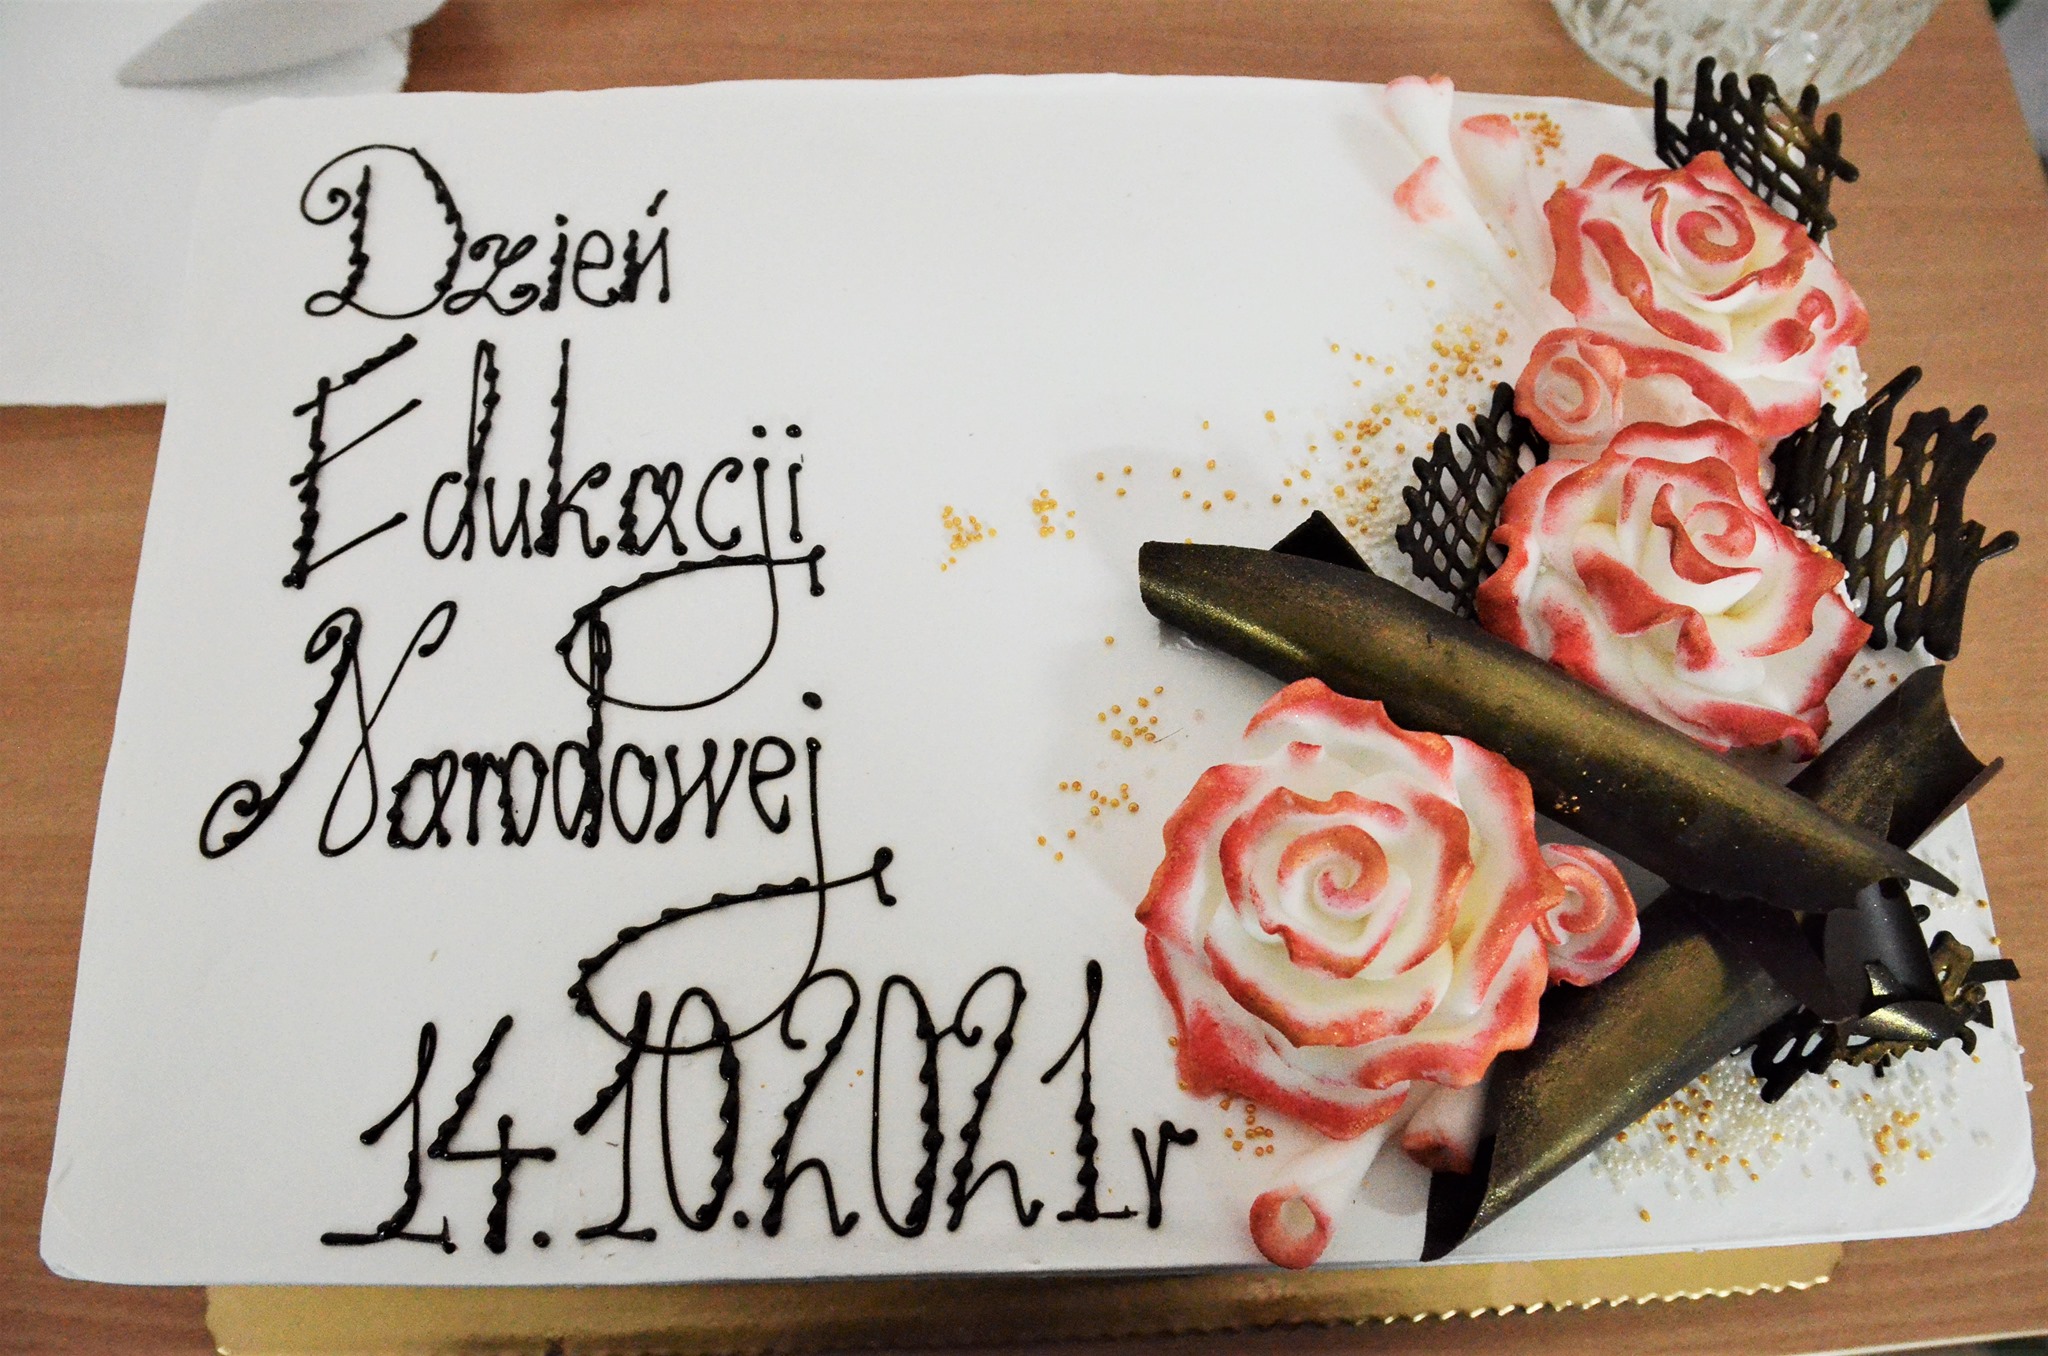 Dzień
Edukacji
Narodowej
14.10.2021r